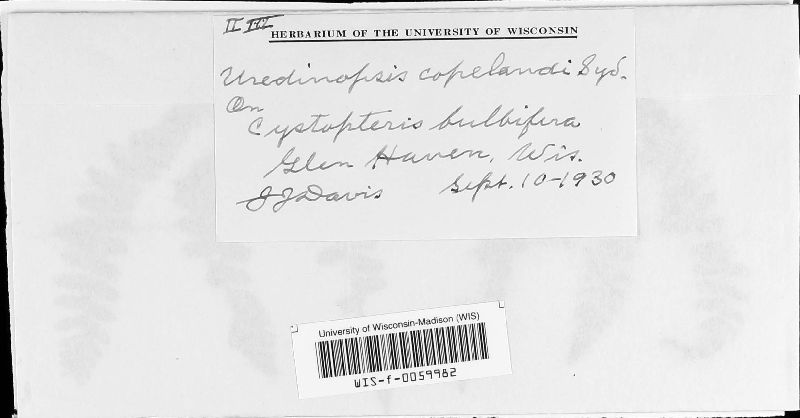 II III
HERBARIUM OF THE UNIVERSITY OF WISCONSIN
Uredinopsis copelandi Syd.
On
Cystopteris bulbifera
Glen Haven, Wis.
J J Davis Sept. 10-1930
University of Wisconsin-Madison (WIS)
WIS-f-0059982